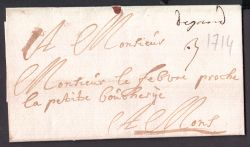 A Monsieur
Monsieur le febvre proche
la petite boucherye
A Mons
1714